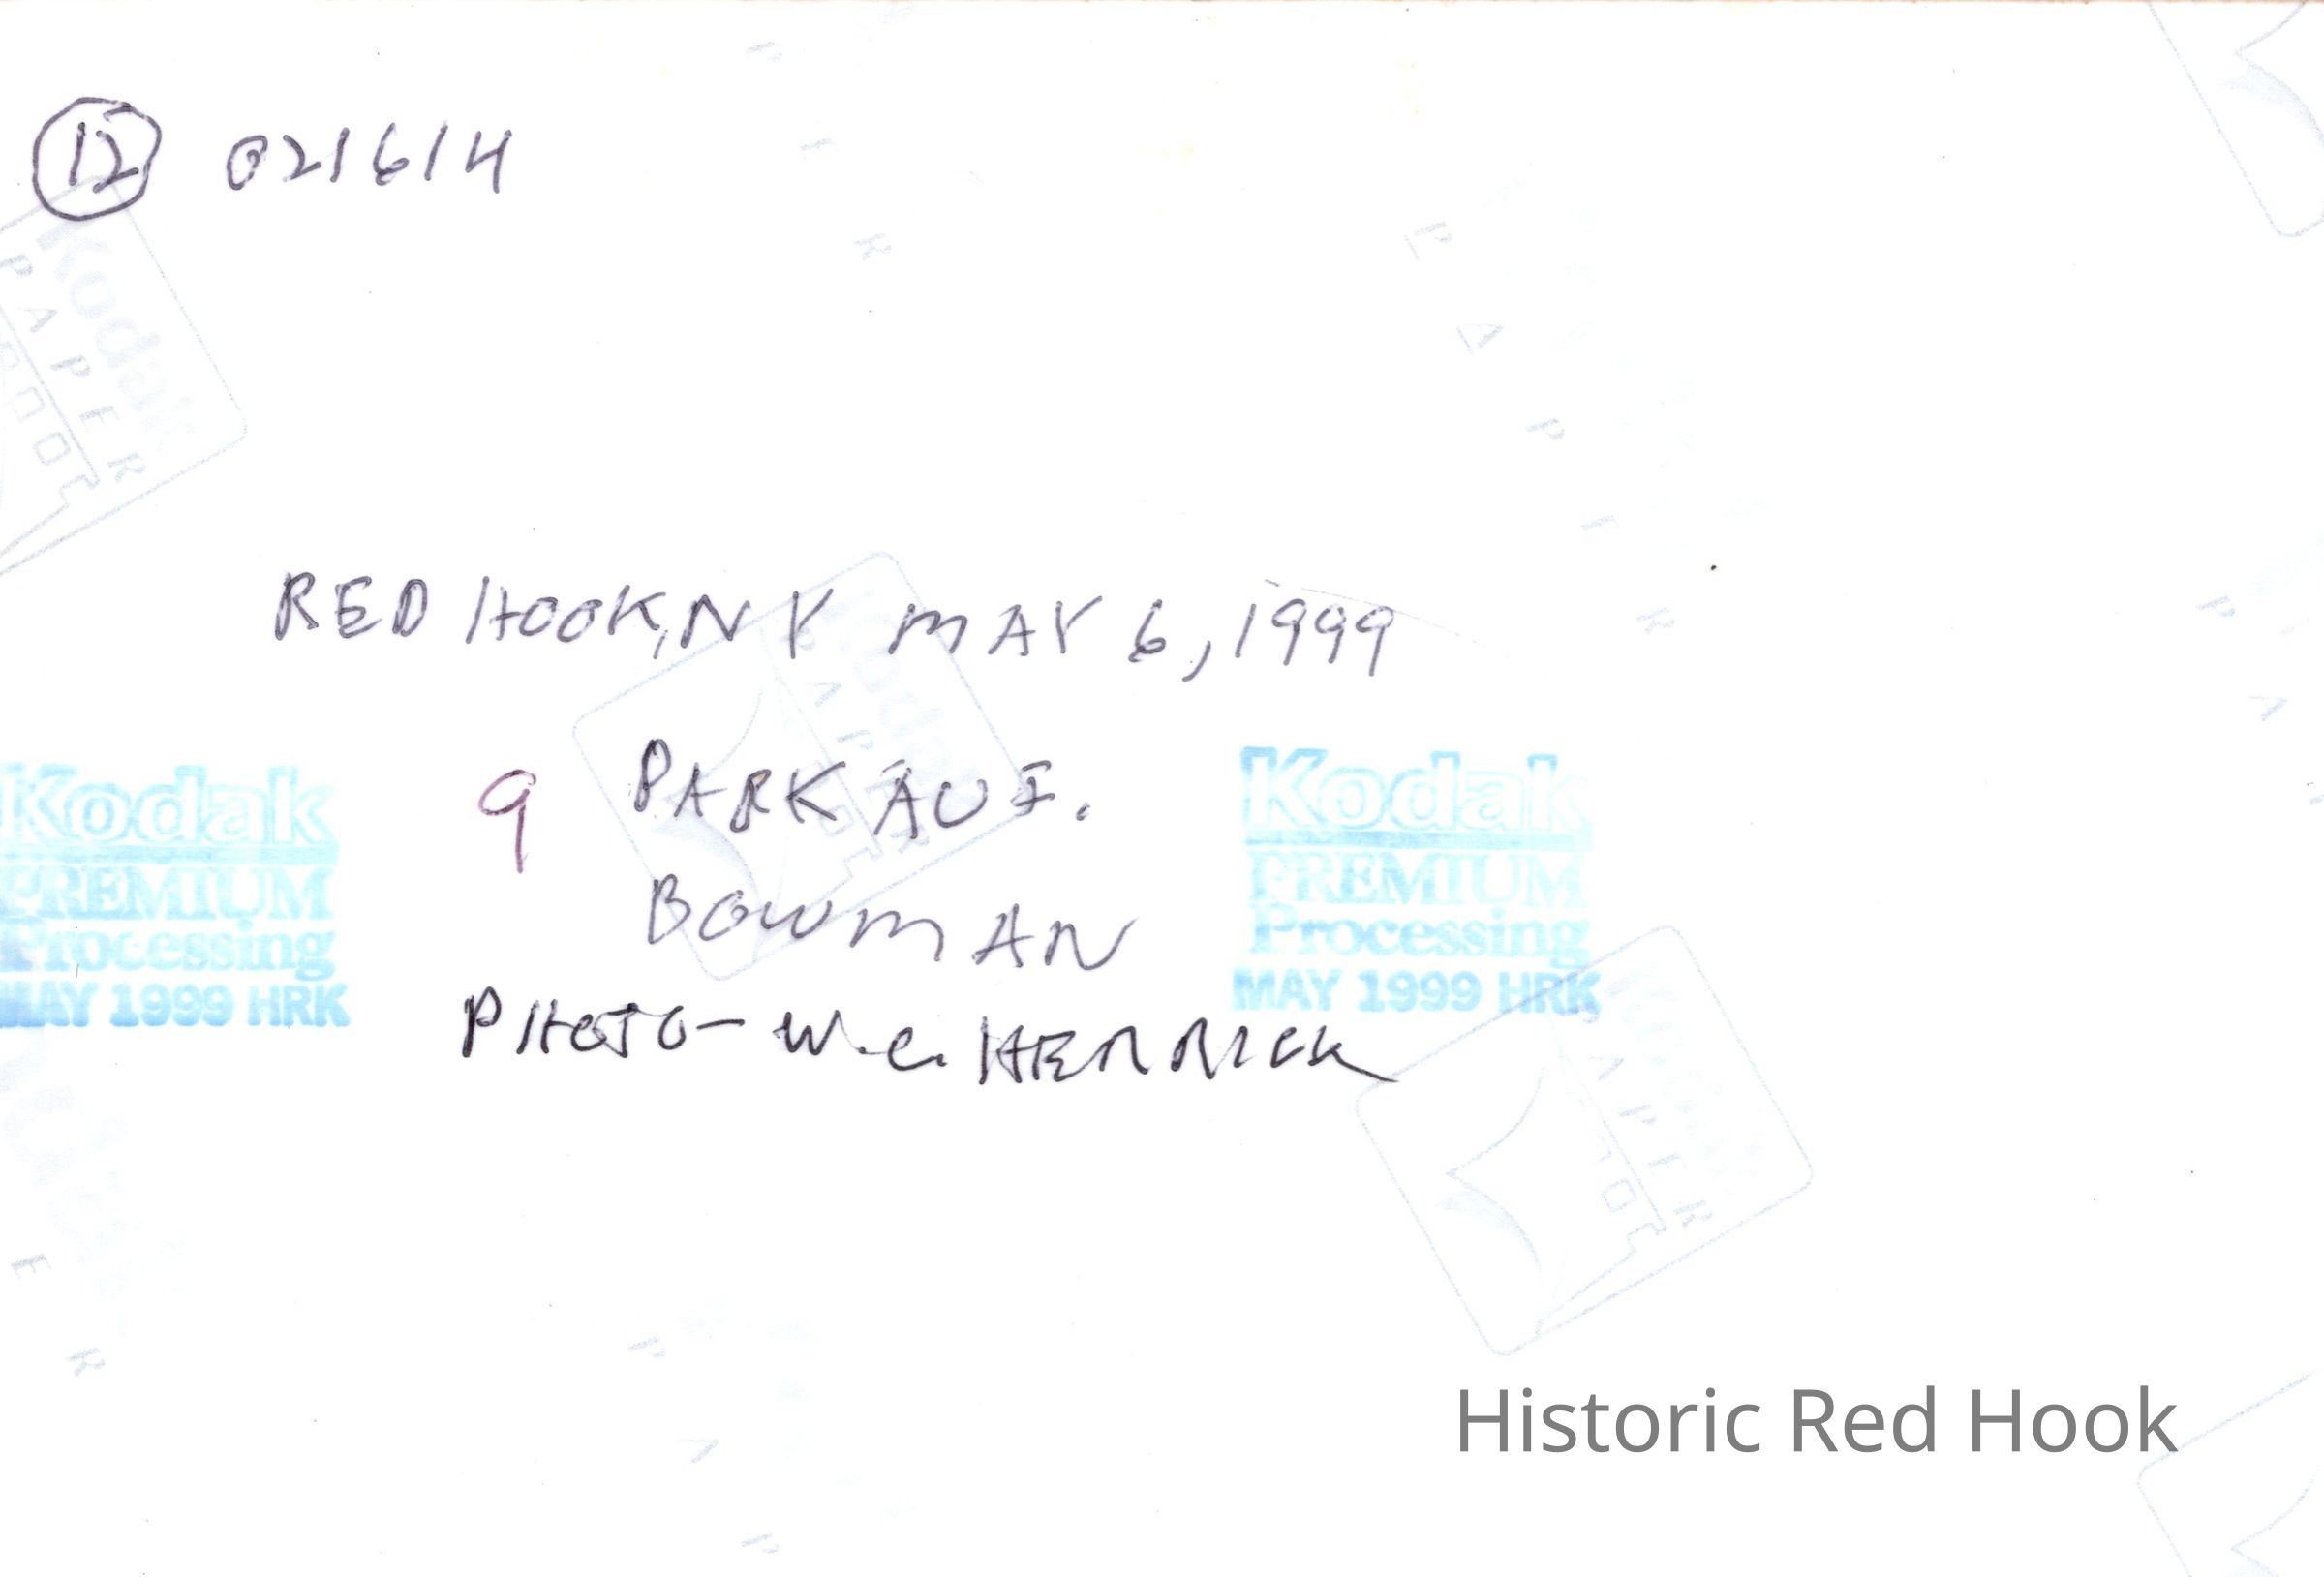 12 021614
RED HOOK, NY MAY 6, 1999
9 PARK AVE.
BOWMAN
PHOTO - W.C. HERRICK
Kodak
PREMIUM
Processing
MAY 1999 HRK
Kodak
PREMIUM
Processing
MAY 1999 HRK
Kodak
PAPER
PAPER
Historic Red Hook